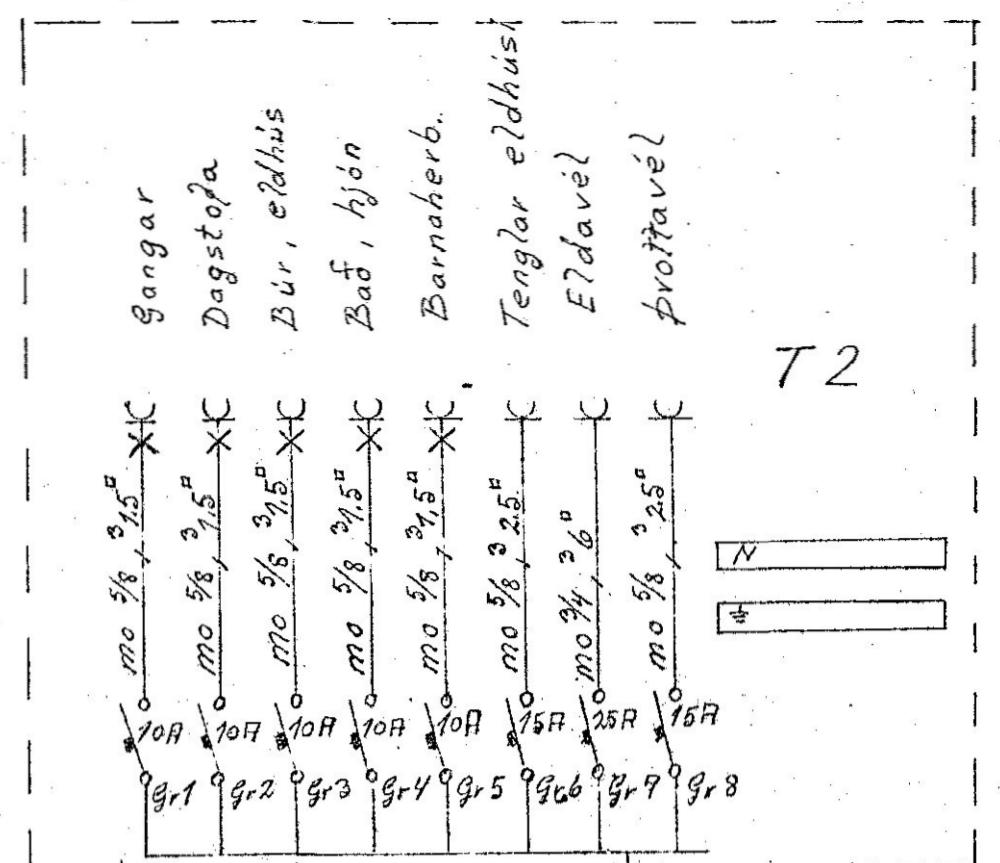 Gangar
Dagstofa
Búr, eldhús
Bað, hjón
Barnaherb.
Tenglar eldhúsi
Eldavél
Þvottavél
T2
mo 5/8, 3 1,5□
mo 5/8, 3 1,5□
mo 5/8, 3 1,5□
mo 5/8, 3 1,5□
mo 5/8, 3 1,5□
mo 5/8, 3 2,5□
mo 3/4, 3 6□
mo 5/8, 3 2,5□
N
10A 10A 10A 10A 10A 15A 25A 15A
Gr1 Gr2 Gr3 Gr4 Gr5 Gr6 Gr7 Gr8